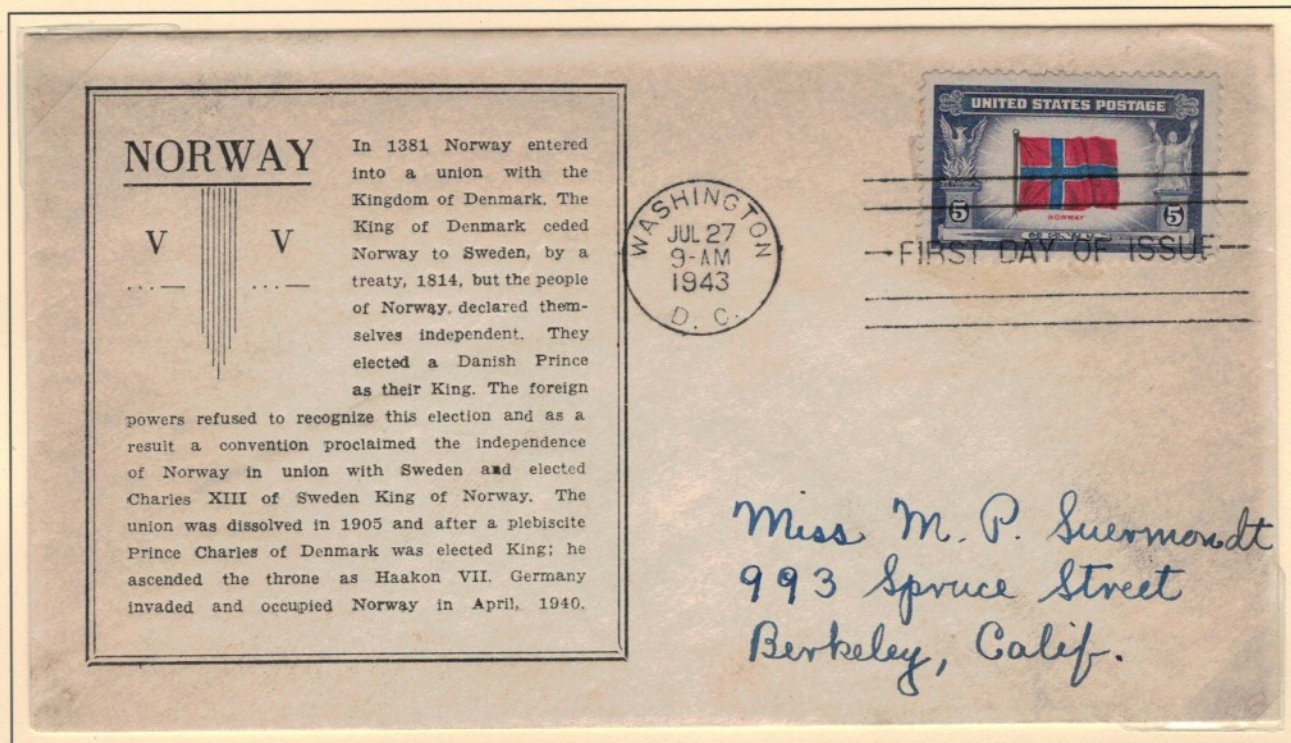 NORWAY
V V
...— ...—
In 1381 Norway entered
into a union with the
Kingdom of Denmark. The
King of Denmark ceded
Norway to Sweden, by a
treaty, 1814, but the people
of Norway, declared them-
selves independent. They
elected a Danish Prince
as their King. The foreign
powers refused to recognize this election and as a
result a convention proclaimed the independence
of Norway in union with Sweden and elected
Charles XIII of Sweden King of Norway. The
union was dissolved in 1905 and after a plebiscite
Prince Charles of Denmark was elected King; he
ascended the throne as Haakon VII. Germany
invaded and occupied Norway in April, 1940.
WASHINGTON
JUL 27
9-AM
1943
D. C.
UNITED STATES POSTAGE
NORWAY
5 5
CENTS
FIRST DAY OF ISSUE
Miss M. P. Suermondt
993 Spruce Street
Berkeley, Calif.